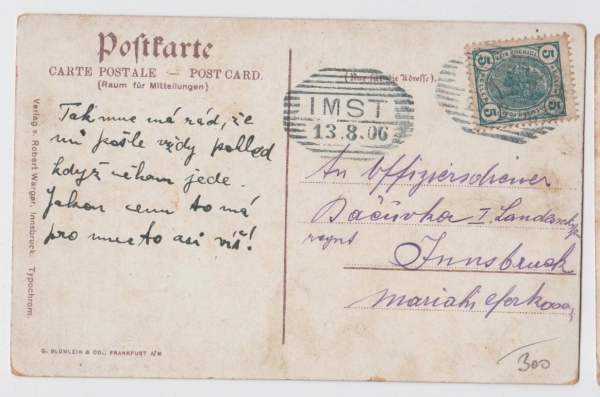 Postkarte
CARTE POSTALE — POST CARD.
(Raum für Mitteilungen)
Tak mne má rád, že
mi pošle vždy pohled
když někam jede.
Jakou cenu to má
pro mne to asi víš!
Verlag v. Robert Warger, Innsbruck. Typochrom.
G. BLÜMLEIN & CO., FRANKFURT A/M
(Nur für die Adresse.)
IMST
13.8.06
5 5
5 5
An Offiziersdiener
I. Landssch
regnt
Innsbruck
300